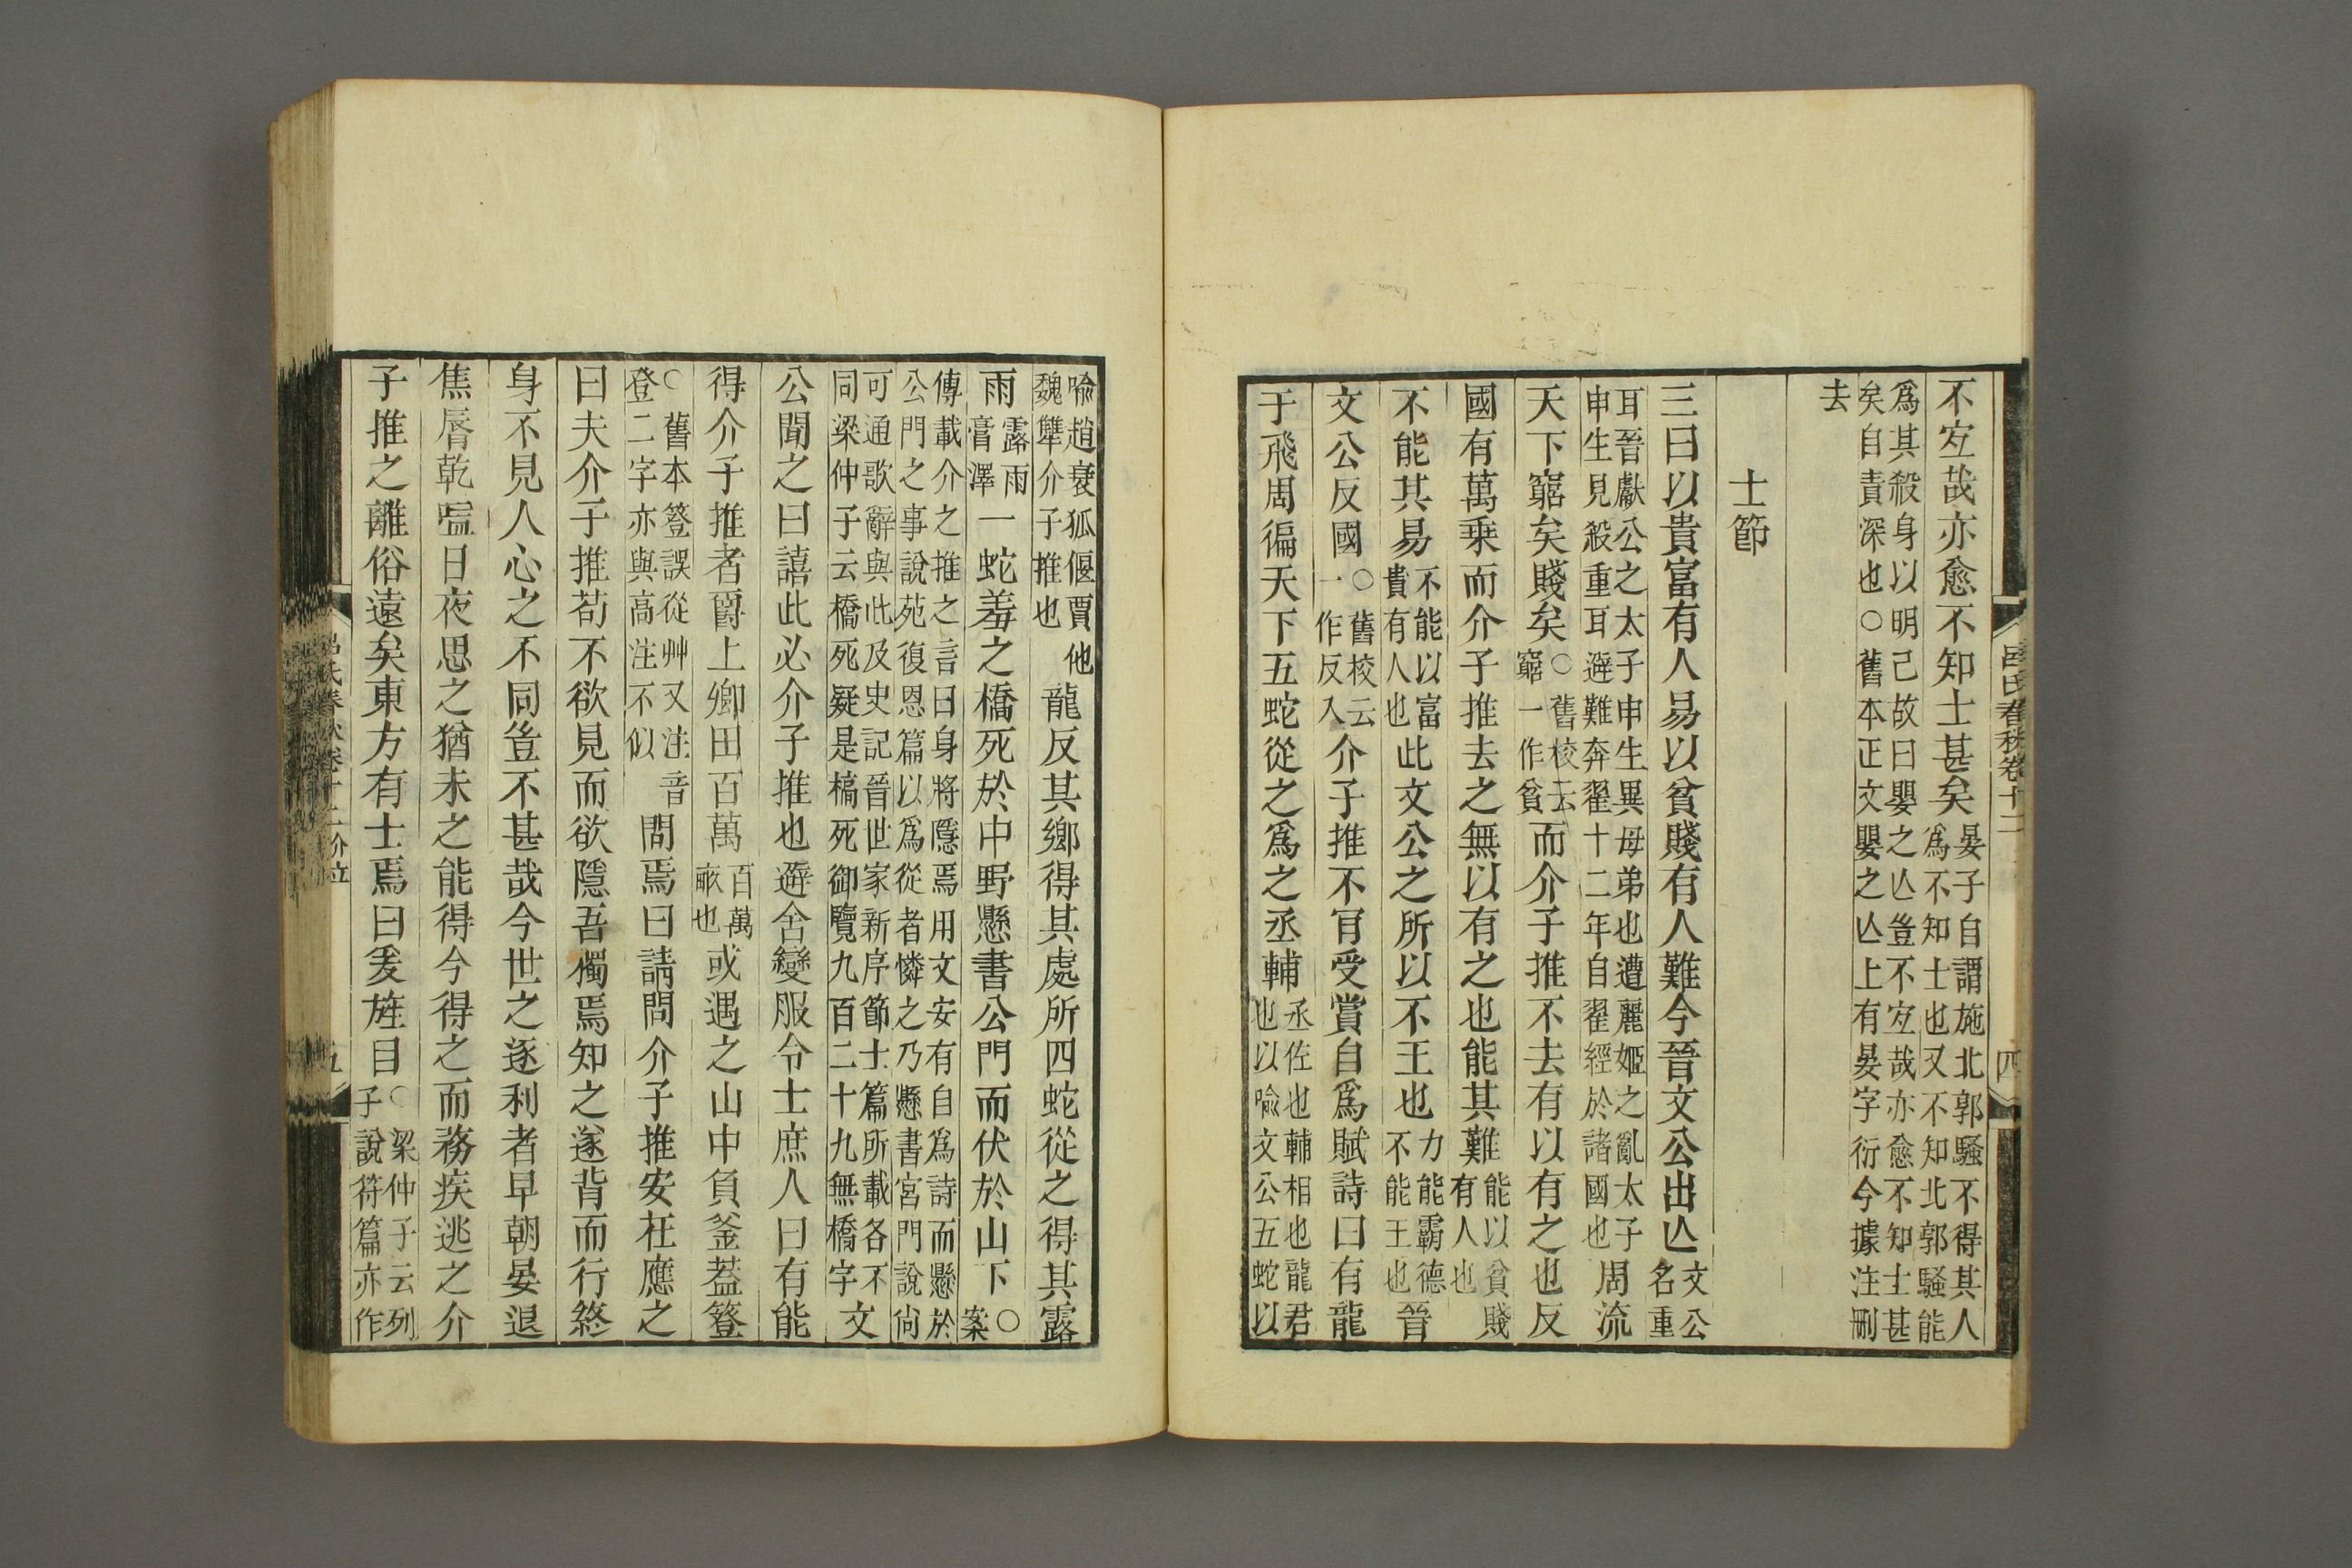 不宐哉亦愈不知士甚矣晏子自謂施北郭騷不得其人爲不知士也又不知北郭騷能
爲其殺身以明己故曰嬰之亾豈不宐哉亦愈不知士甚矣自責深也○舊本正文嬰之亾上有晏字衍今據注刪
去
士節
三曰以貴富有人易以貧賤有人難今晉文公出亾文公名重
耳晉獻公之太子申生異母弟也遭麗姬之亂太子申生見殺重耳避難奔翟十二年自翟經於諸國也周流
天下窮矣賤矣○舊校云窮一作貧而介子推不去有以有之也反
國有萬乘而介子推去之無以有之也能其難能以貧賤有人也
不能其易不能以富貴有人也此文公之所以不王也力能霸德不能王也晉
文公反國○舊校云一作反入介子推不肎受賞自爲賦詩曰有龍
于飛周徧天下五蛇從之爲之丞輔丞佐也輔相也龍君也以喻文公五蛇以
呂氏春秋卷十二
四
喻趙衰狐偃賈他魏犫介子推也龍反其鄉得其處所四蛇從之得其露
雨露雨膏澤一蛇羞之橋死於中野懸書公門而伏於山下○案
傳載介之推之言曰身將隱焉用文安有自爲詩而懸於公門之事說苑復恩篇以爲從者憐之乃懸書宮門說尙
可通歌辭與此及史記晉世家新序節士篇所載各不同梁仲子云橋死疑是槁死御覽九百二十九無橋字文
公聞之曰譆此必介子推也避舍變服令士庶人曰有能
得介子推者爵上卿田百萬百萬畝也或遇之山中負釜蓋簦
○舊本簦誤從艸又注音登二字亦與高注不似問焉曰請問介子推安在應之
曰夫介子推苟不欲見而欲隱吾獨焉知之遂背而行終
身不見人心之不同豈不甚哉今世之逐利者早朝晏退
焦脣乾嗌日夜思之猶未之能得今得之而務疾逃之介
子推之離俗遠矣東方有士焉曰爰旌目○梁仲子云列子說符篇亦作
呂氏春秋卷十二介立
五